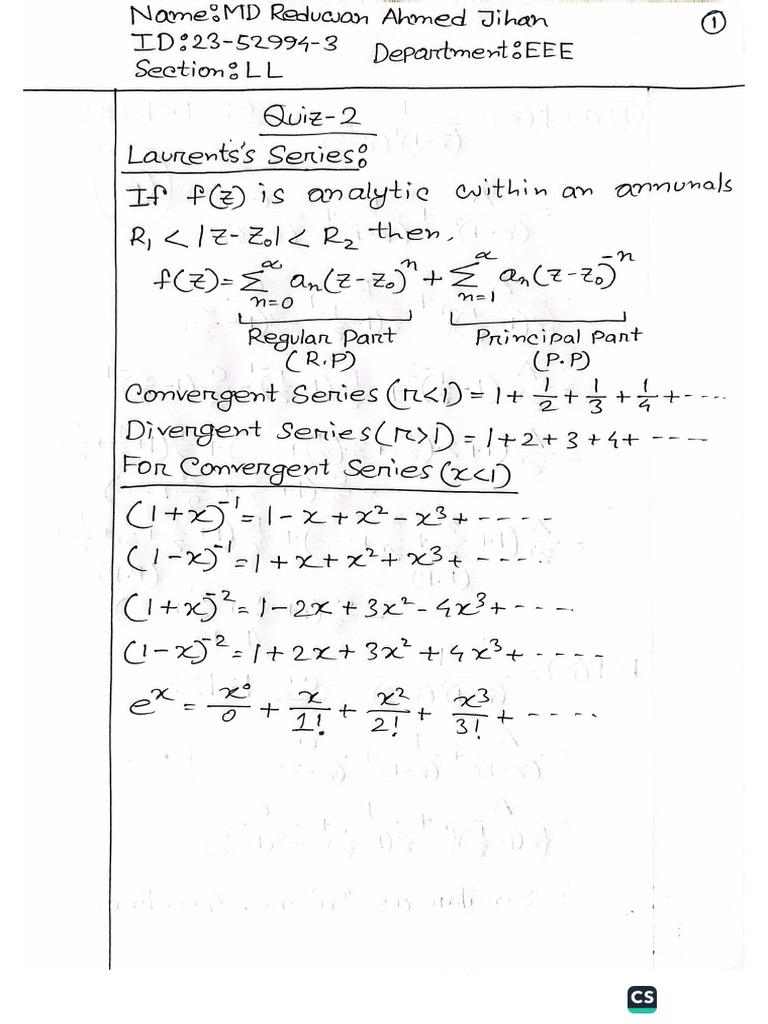 Name:MD Reduwan Ahmed Jihan
①
ID:23-52994-3 Department:EEE
Section:LL
Quiz-2
Laurents's Series:
If f(z) is analytic within an annunals
R₁ < |z-z₀| < R₂ then,
f(z) = ∑_{n=0}^{∝} aₙ(z-z₀)ⁿ + ∑_{n=1}^{∝} aₙ(z-z₀)⁻ⁿ
Regular Part Principal part
(R.P) (P.P)
Convergent Series (r<1) = 1 + 1/2 + 1/3 + 1/4 + ----
Divergent Series (r>1) = 1+2+3+4+ ----
For Convergent Series (x<1)
(1+x)⁻¹ = 1 - x + x² - x³ + -----
(1-x)⁻¹ = 1 + x + x² + x³ + ----
(1+x)⁻² = 1 - 2x + 3x² - 4x³ + ----
(1-x)⁻² = 1 + 2x + 3x² + 4x³ + -----
eˣ = x⁰/0 + x/1! + x²/2! + x³/3! + -----
CS